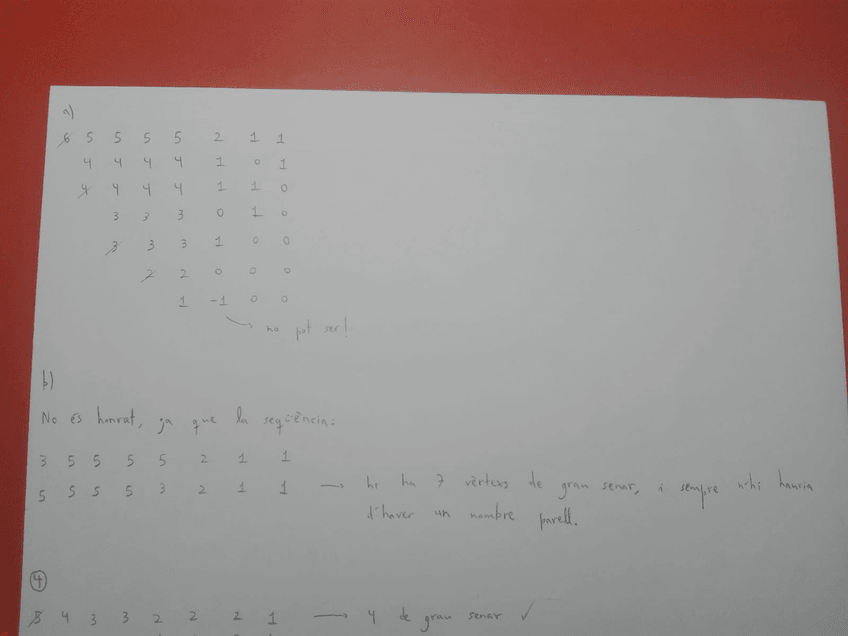 a)
6 5 5 5 5 2 1 1
4 4 4 4 1 0 1
4 4 4 4 1 1 0
3 3 3 0 1 0
3 3 3 1 0 0
2 2 0 0 0
1 -1 0 0
no pot ser!
b)
No és honrat, ja que la seqüència:
3 5 5 5 5 2 1 1
5 5 5 5 3 2 1 1 → hi ha 7 vèrtexs de grau senar, i sempre n'hi hauria
d'haver un nombre parell.
4
5 4 3 3 2 2 2 1 → 4 de grau senar ✓